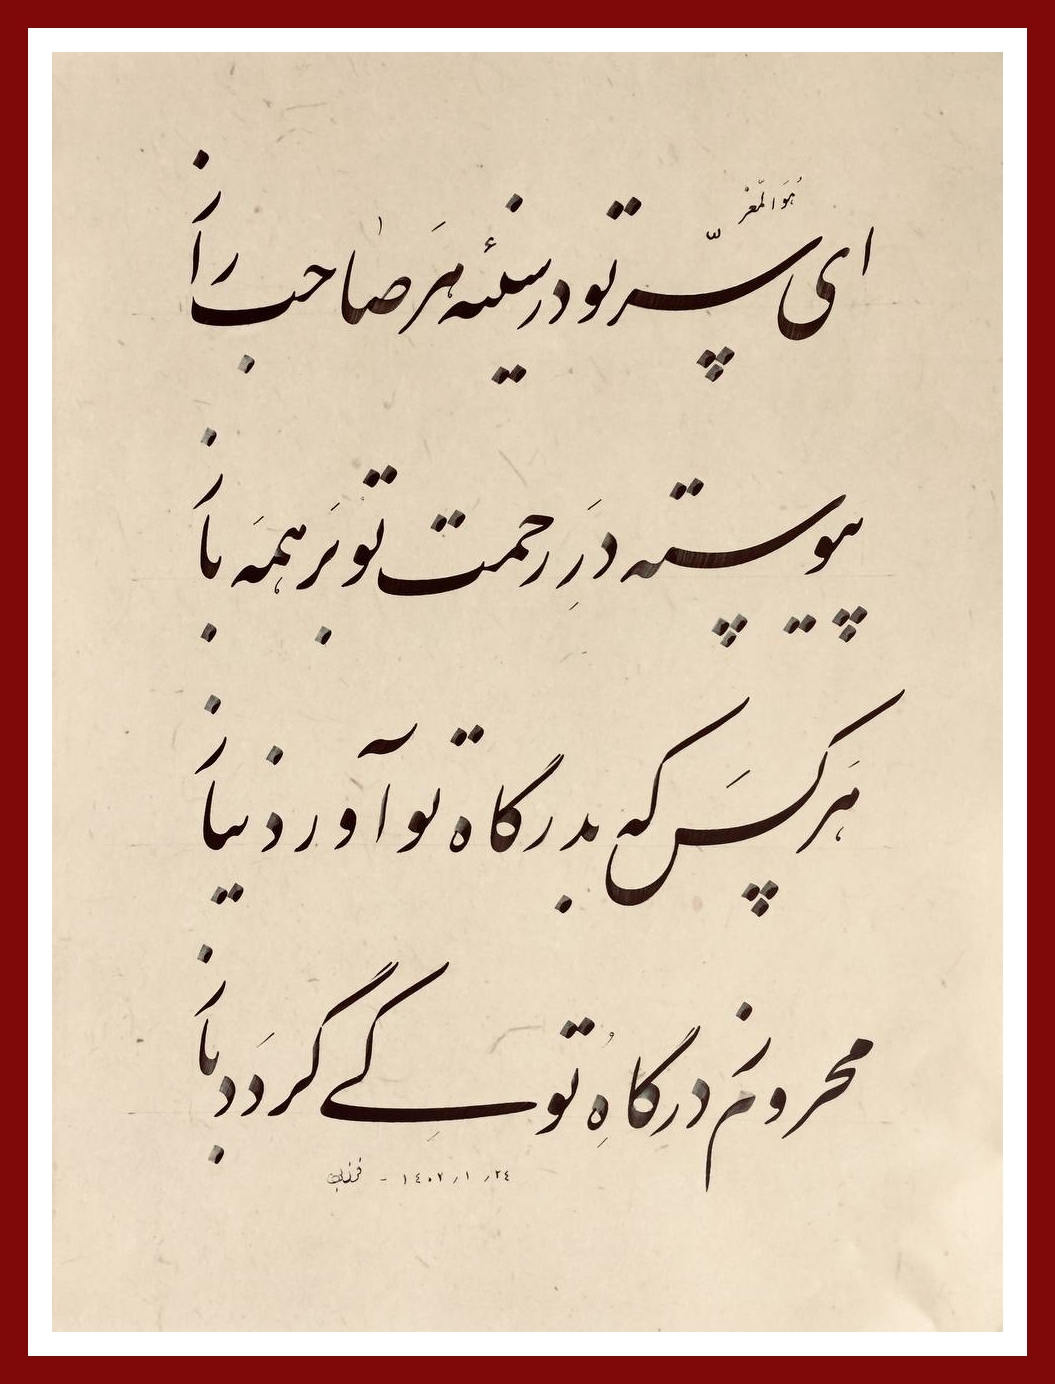 هُوَ المُعِزّ
ای سِرّ تو در سینهٔ هر صاحب راز
پیوسته درِ رحمت تو بر همه باز
هر کس که بدرگاه تو آورد نیاز
محروم ز درگاهِ تو کِے گردد باز
۱۴۰۲/۱/۲۴ -